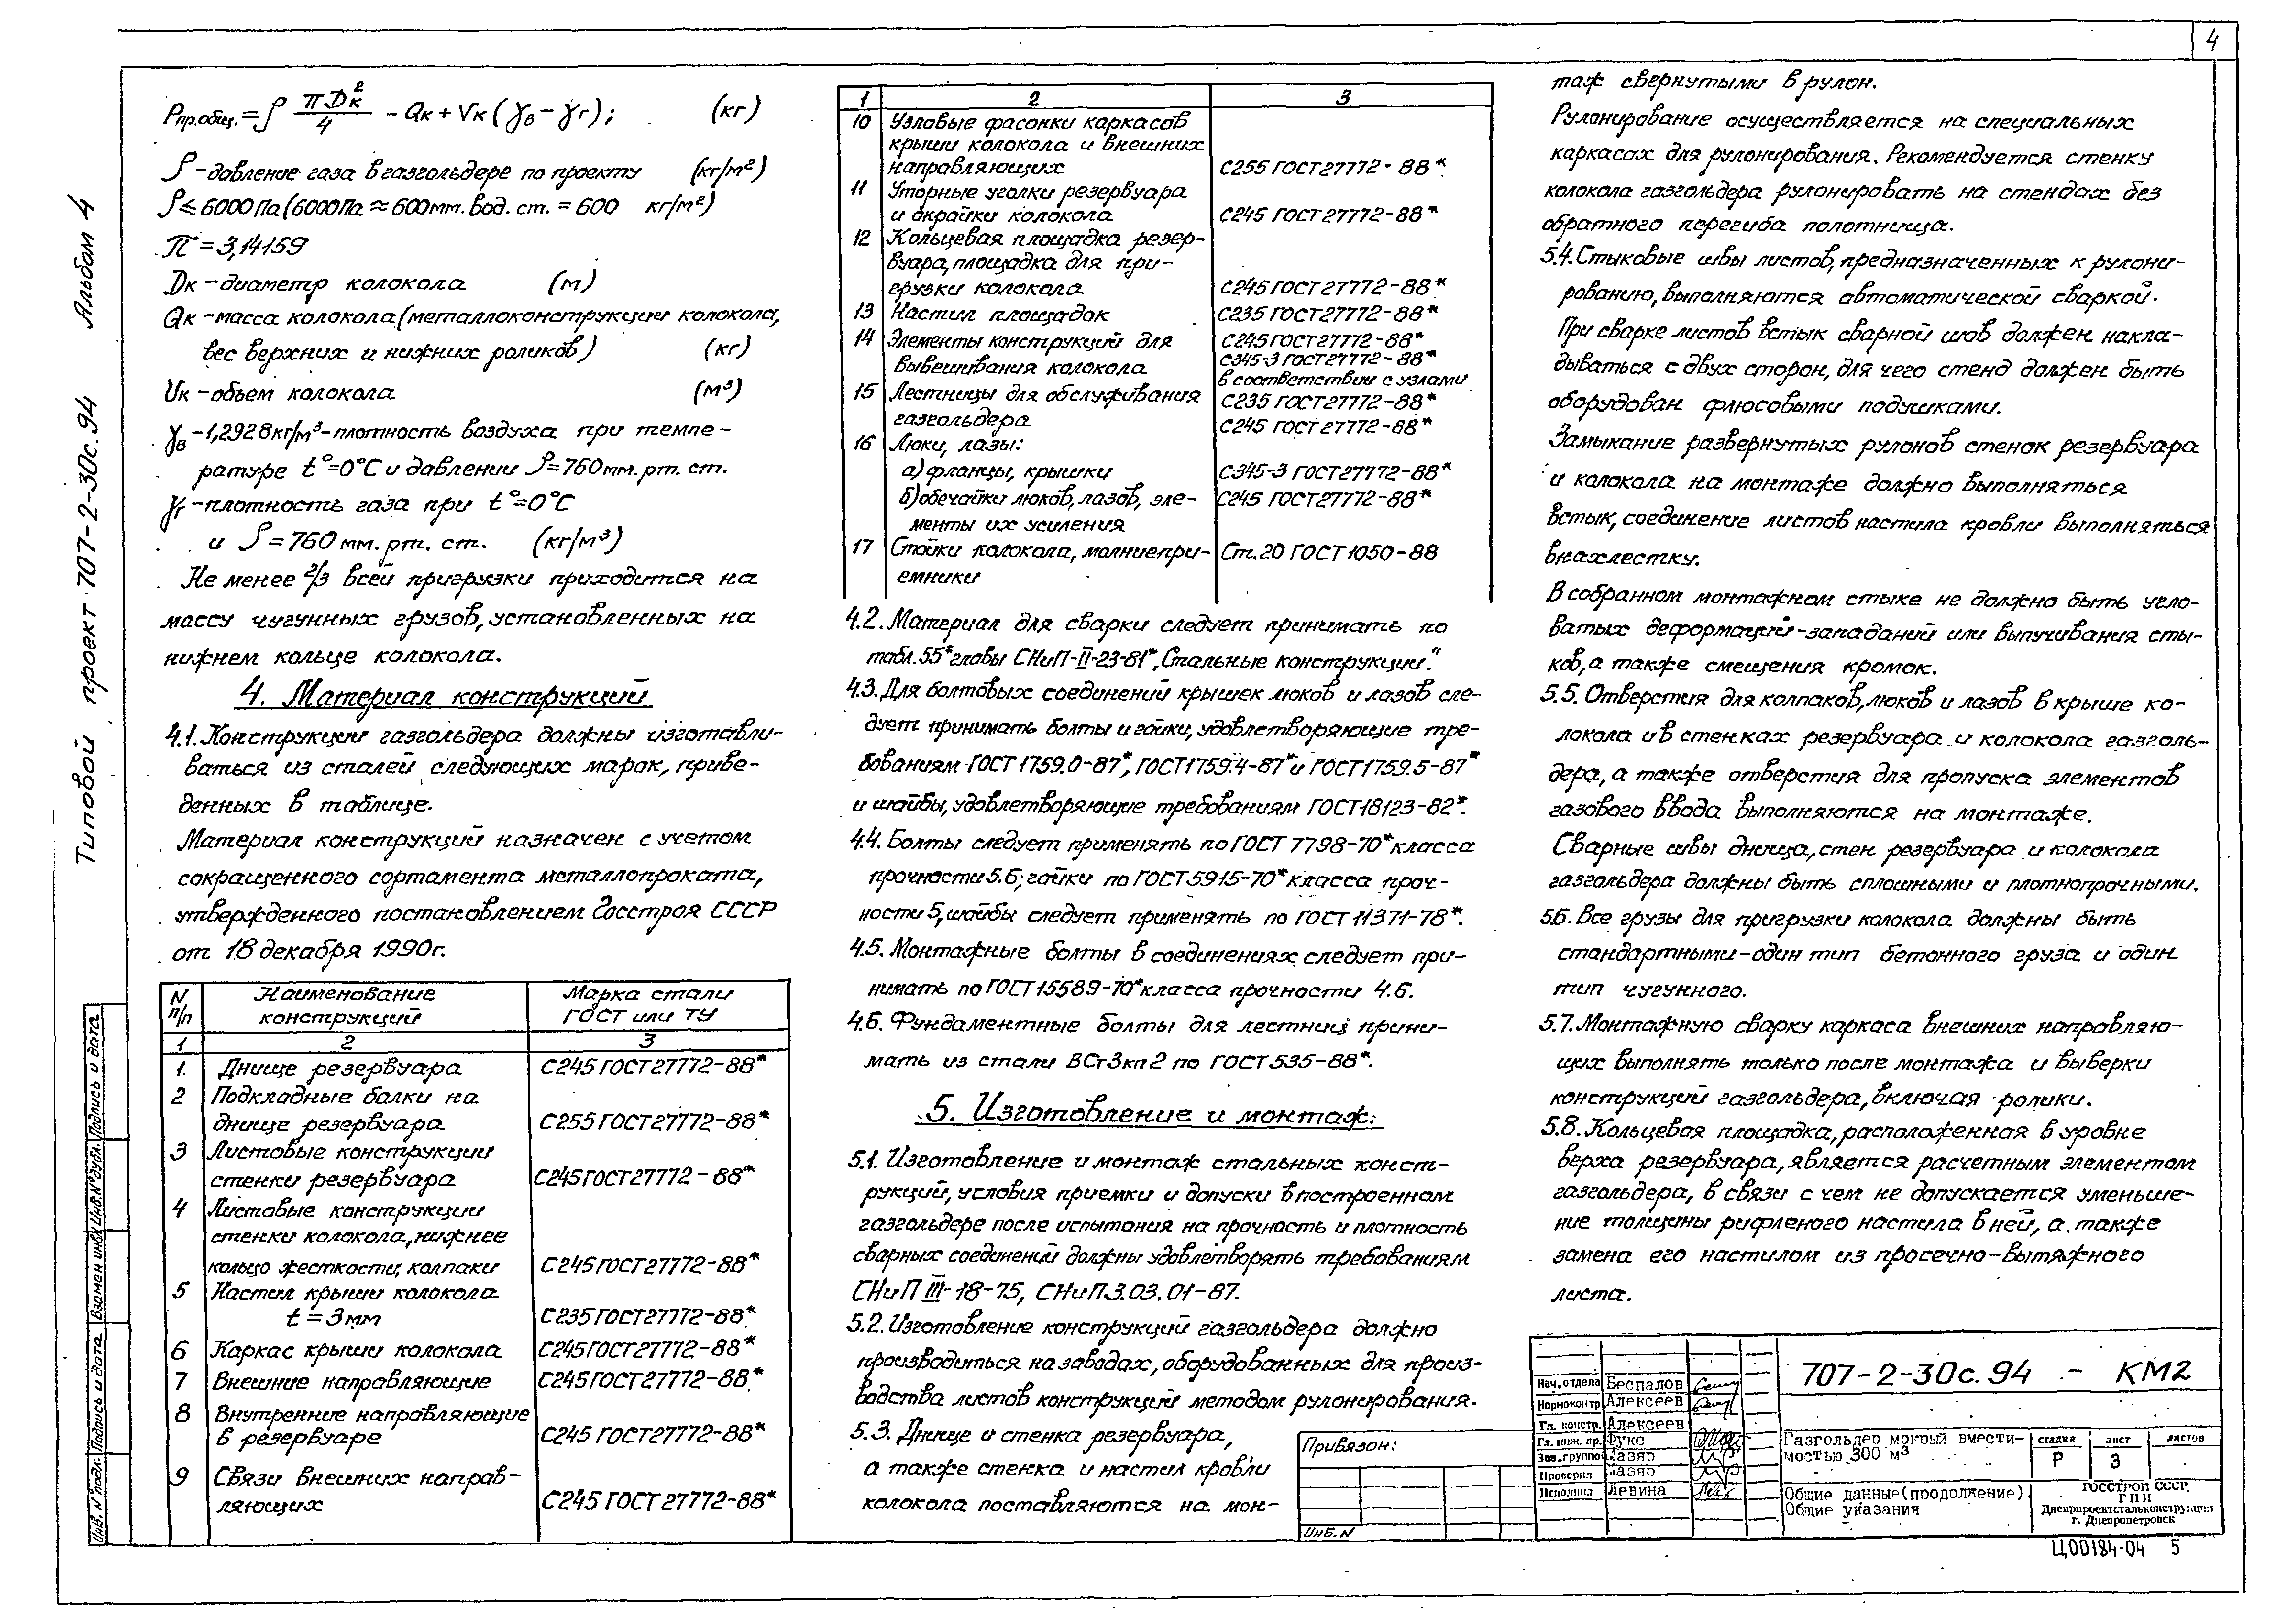 4
Типовой проект 707-2-30с.94 Альбом 4
Рпр.общ. = ρ πDк²/4 - Qк + Vк (γв - γг); (кг)
ρ - давление газа в газгольдере по проекту (кг/м²)
ρ ≤ 6000 Па (6000 Па ≈ 600 мм. вод. ст. = 600 кг/м²)
π = 3,14159
Dк - диаметр колокола (м)
Qк - масса колокола (металлоконструкции колокола,
вес верхних и нижних роликов) (кг)
Vк - объем колокола (м³)
γв - 1,2928 кг/м³ - плотность воздуха при темпе-
ратуре t°=0°С и давлении ρ=760 мм. рт. ст.
γг - плотность газа при t°=0°С
и ρ = 760 мм. рт. ст. (кг/м³)
Не менее 2/3 всей пригрузки приходится на
массу чугунных грузов, установленных на
нижнем кольце колокола.
4. Материал конструкций
4.1. Конструкции газгольдера должны изготавли-
ваться из сталей следующих марок, приве-
денных в таблице.
Материал конструкций назначен с учетом
сокращенного сортамента металлопроката,
утвержденного постановлением Госстроя СССР
от 18 декабря 1990г.
N п/п | Наименование конструкций | Марка стали ГОСТ или ТУ
1 2 3
1. Днище резервуара С245 ГОСТ 27772-88*
2 Подкладные балки на
днище резервуара С255 ГОСТ 27772-88*
3 Листовые конструкции
стенки резервуара С245 ГОСТ 27772-88*
4 Листовые конструкции
стенки колокола, нижнее
кольцо жесткости, колпаки С245 ГОСТ 27772-88*
5 Настил крыши колокола
t = 3 мм С235 ГОСТ 27772-88*
6 Каркас крыши колокола С245 ГОСТ 27772-88*
7 Внешние направляющие С245 ГОСТ 27772-88*
8 Внутренние направляющие
в резервуаре С245 ГОСТ 27772-88*
9 Связи внешних направ-
ляющих С245 ГОСТ 27772-88*
1 2 3
10 Узловые фасонки каркасов
крыши колокола и внешних
направляющих С255 ГОСТ 27772-88*
11 Упорные уголки резервуара
и окрайки колокола С245 ГОСТ 27772-88*
12 Кольцевая площадка резер-
вуара, площадка для при-
грузки колокола С245 ГОСТ 27772-88*
13 Настил площадок С235 ГОСТ 27772-88*
14 Элементы конструкций для С245 ГОСТ 27772-88*
С345-3 ГОСТ 27772-88*
вывешивания колокола в соответствии с узлами
15 Лестницы для обслуживания С235 ГОСТ 27772-88*
газгольдера С245 ГОСТ 27772-88*
16 Люки, лазы:
а) фланцы, крышки С345-3 ГОСТ 27772-88*
б) обечайки люков, лазов, эле- С245 ГОСТ 27772-88*
менты их усиления
17 Стойки колокола, молниепри- Ст.20 ГОСТ 1050-88
емники
4.2. Материал для сварки следует принимать по
табл. 55* главы СНиП-II-23-81* „Стальные конструкции."
4.3. Для болтовых соединений крышек люков и лазов сле-
дует принимать болты и гайки, удовлетворяющие тре-
бованиям ГОСТ 1759.0-87*, ГОСТ 1759.4-87* и ГОСТ 1759.5-87*
и шайбы, удовлетворяющие требованиям ГОСТ 18123-82*.
4.4. Болты следует применять по ГОСТ 7798-70* класса
прочности 5.6, гайки по ГОСТ 5915-70* класса проч-
ности 5, шайбы следует применять по ГОСТ 11371-78*.
4.5. Монтажные болты в соединениях следует при-
нимать по ГОСТ 15589-70* класса прочности 4.6.
4.6. Фундаментные болты для лестниц прини-
мать из стали ВСт3кп2 по ГОСТ 535-88*.
5. Изготовление и монтаж:
5.1. Изготовление и монтаж стальных конст-
рукций, условия приемки и допуски в построенном
газгольдере после испытания на прочность и плотность
сварных соединений должны удовлетворять требованиям
СНиП III-18-75, СНиП 3.03.01-87.
5.2. Изготовление конструкций газгольдера должно
производиться на заводах, оборудованных для произ-
водства листов конструкций методом рулонирования.
5.3. Днище и стенка резервуара,
а также стенка и настил кровли
колокола поставляются на мон-
таж свернутыми в рулон.
Рулонирование осуществляется на специальных
каркасах для рулонирования. Рекомендуется стенку
колокола газгольдера рулонировать на стендах без
обратного перегиба полотнища.
5.4. Стыковые швы листов, предназначенных к рулони-
рованию, выполняются автоматической сваркой.
При сварке листов встык сварной шов должен накла-
дываться с двух сторон, для чего стенд должен быть
оборудован флюсовыми подушками.
Замыкание развернутых рулонов стенок резервуара
и колокола на монтаже должно выполняться
встык, соединение листов настила кровли выполняться
внахлестку.
В собранном монтажном стыке не должно быть угло-
ватых деформаций-западаний или выпучивания сты-
ков, а также смещения кромок.
5.5. Отверстия для колпаков, люков и лазов в крыше ко-
локола и в стенках резервуара и колокола газголь-
дера, а также отверстия для пропуска элементов
газового ввода выполняются на монтаже.
Сварные швы днища, стен резервуара и колокола
газгольдера должны быть сплошными и плотнопрочными.
5.6. Все грузы для пригрузки колокола должны быть
стандартными-один тип бетонного груза и один
тип чугунного.
5.7. Монтажную сварку каркаса внешних направляю-
щих выполнять только после монтажа и выверки
конструкций газгольдера, включая ролики.
5.8. Кольцевая площадка, расположенная в уровне
верха резервуара, является расчетным элементом
газгольдера, в связи с чем не допускается уменьше-
ние толщины рифленого настила в ней, а также
замена его настилом из просечно-вытяжного
листа.
Привязон:
Инв. N
Нач. отдела Беспалов
Нормоконтр Алексеев
Гл. констр. Алексеев
Гл. инж. пр. Фукс
Зав. группо Лазяр
Проверил Лазяр
Исполнил Левина
707-2-30с.94 - КМ2
Газгольдер мокрый вмести-
мостью 300 м³
стадия лист листов
Р 3
Общие данные(продолжение)
Общие указания
ГОССТРОЙ СССР
ГПИ
Днепрпроектстальконструкция
г. Днепропетровск
Ц00184-04 5
Инв. N подл. Подпись и дата Взамен инв.N Инв.N дубл. Подпись и дата